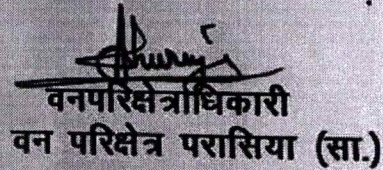 वनपरिक्षेत्राधिकारी
वन परिक्षेत्र परासिया (सा.)